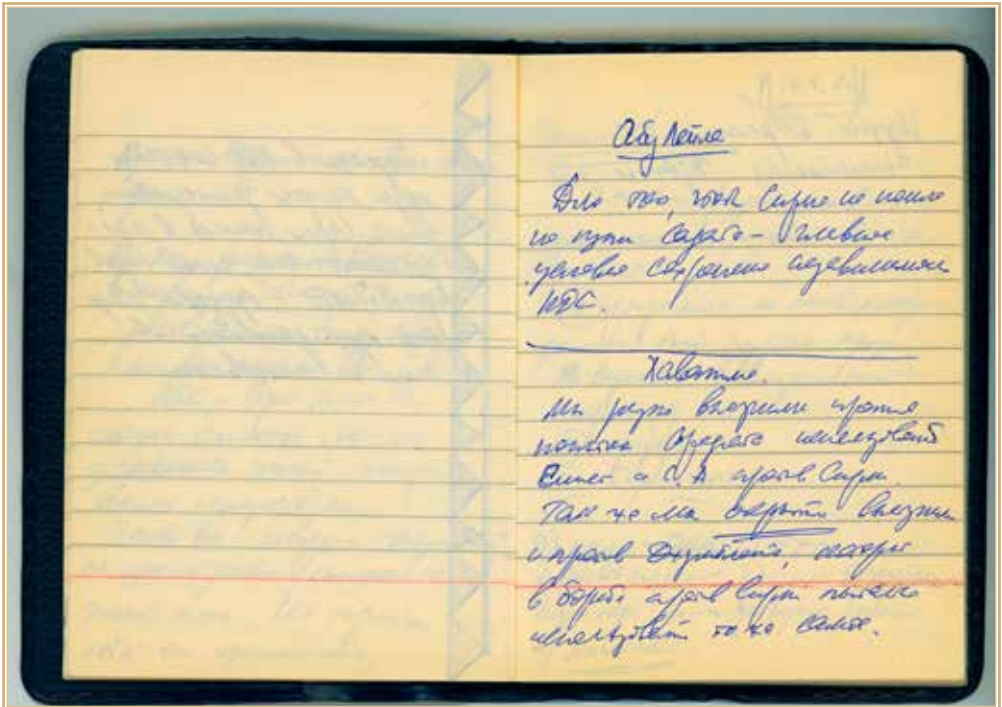 Абу Лейла
Для того, чтоб Сирия не пошла
по пути Садата – главное
условие сохранение независимости
ПДС.
Хаватме.
Мы резко выступили против
попытки использовать
Египет и С.А против Сирии.
Так же мы открыто выступили
и против, который
в борьбе против Сирии пытался
использовать то же самое.